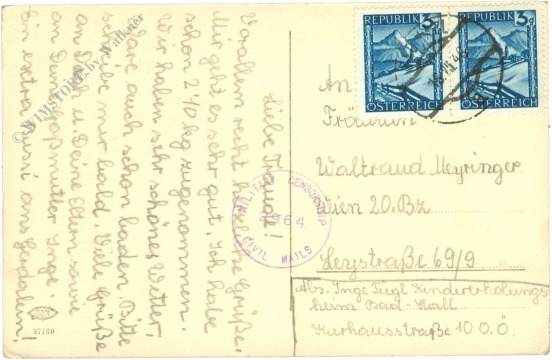 Liebe Traude!
Vorallem recht herzliche Grüße.
Mir geht es sehr gut. Ich habe
schon 2'10 kg zugenommen.
Wir haben sehr schönes Wetter,
ware auch schon baden. Bitte
schreibe mir bald. Viele Grüße
an Dich u. Deine Eltern sowie
an Deine Großmutter Inge.
Ein extra Bussi ans
37180
REPUBLIK 5g
ÖSTERREICH
REPUBLIK 5g
ÖSTERREICH
An
Fräulein
Waltraud Meyringer
Wien 20. Bz
Leystraße 69/9
Abs. Inge Fügl Kindererholungs
heim Bad-Hall
Kurhausstraße 10 O.Ö.
MILITARY CENSORSHIP
2964
CIVIL MAILS
© WIMSTORE by Walkner